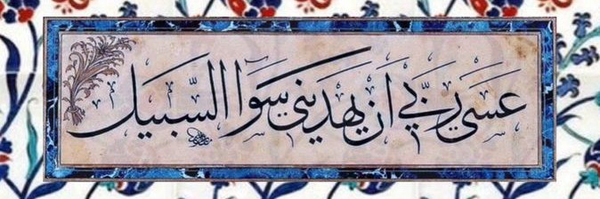 عَسَى رَبِّي اَنْ يَهْدِيَنِي سَوَاءَ السَّبِيلِ